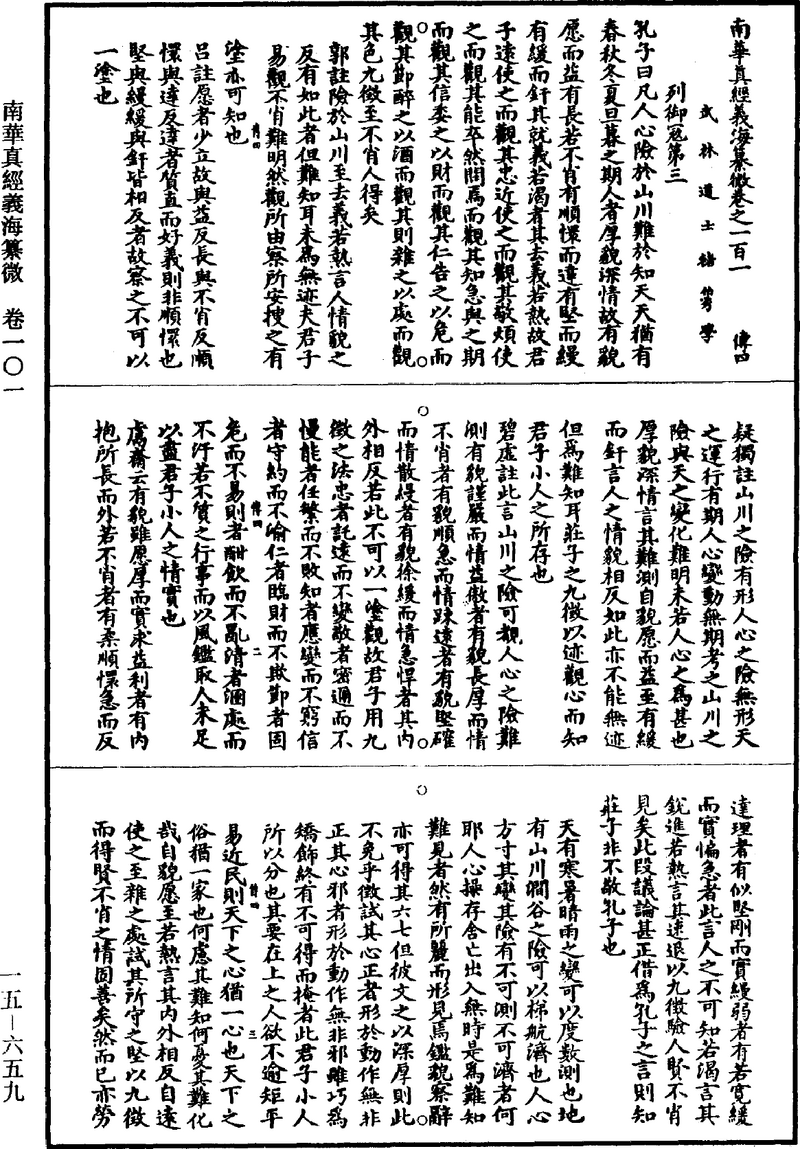 南華真經義海纂微 卷一〇一
南華真經義海纂微卷之一百一 傳四
武林道士褚伯秀學
列御寇第三
孔子曰凡人心險於山川難於知天天猶有
春秋冬夏旦暮之期人者厚貌深情故有貌
愿而益有長若不肖有順懁而達有堅而縵
有緩而釬其就義若渴者其去義若熱故君
子遠使之而觀其忠近使之而觀其敬煩使
之而觀其能卒然問焉而觀其知急與之期
而觀其信委之以財而觀其仁告之以危而
觀其節醉之以酒而觀其則雜之以處而觀
其色九徵至不肖人得矣
郭註險於山川至去義若熱言人情貌之
反有如此者但難知耳未為無迹夫君子
易觀不肖難明然觀所由察所安搜之有
塗亦可知也
呂註愿者少立故與益反長與不肖反順
懁與達反達者質直而好義則非順懁也
堅與縵緩與釬皆相反者故察之不可以
一塗也
疑獨註山川之險有形人心之險無形天
之運行有期人心變動無期考之山川之
險與天之變化難明未若人心之為甚也
厚貌深情言其難測自貌愿而益至有緩
而釬言人之情貌相反如此亦不能無迹
但為難知耳莊子之九徵以迹觀心而知
君子小人之所存也
碧虛註此言山川之險可觀人心之險難
測有貌謹嚴而情益傲者有貌長厚而情
不肖者有貌順急而情踈達者有貌堅確
而情散縵者有貌徐緩而情急悍者其內
外相反若此不可以一塗觀故君子用九
徵之法忠者託遠而不變敬者密邇而不
慢能者任繁而不敗知者應變而不窮信
者守約而不渝仁者臨財而不欺節者固
危而不易則者酣飲而不亂清者溷處而
不汙若不質之行事而以風鑑取人未足
以盡君子小人之情實也
鬳齋云有貌雖愿厚而實求益利者有內
抱所長而外若不肖者有柔順懁急而反
達理者有似堅剛而實縵弱者有若寬緩
而實惼急者此言人之不可知若渴言其
銳進若熱言其速退以九徵驗人賢不肖
見矣此段議論甚正借為孔子之言則知
莊子非不敬孔子也
天有寒暑晴雨之變可以度數測也地
有山川澗谷之險可以梯航濟也人心
方寸其變其險有不可測不可濟者何
耶人心操存舍亡出入無時是為難知
難見者然有所麗而形見焉鑑貌察辭
亦可得其六七但彼文之以深厚則此
不免乎徵試其心正者形於動作無非
正其心邪者形於動作無非邪雖巧為
矯飾終有不可得而掩者此君子小人
所以分也其要在上之人欲不逾矩平
易近民則天下之心猶一心也天下之
俗猶一家也何慮其難知何憂其難化
哉自貌愿至若熱言其內外相反自遠
使之至雜之處試其所守之堅以九徵
而得賢不肖之情固善矣然而已亦勞
一五－六五九